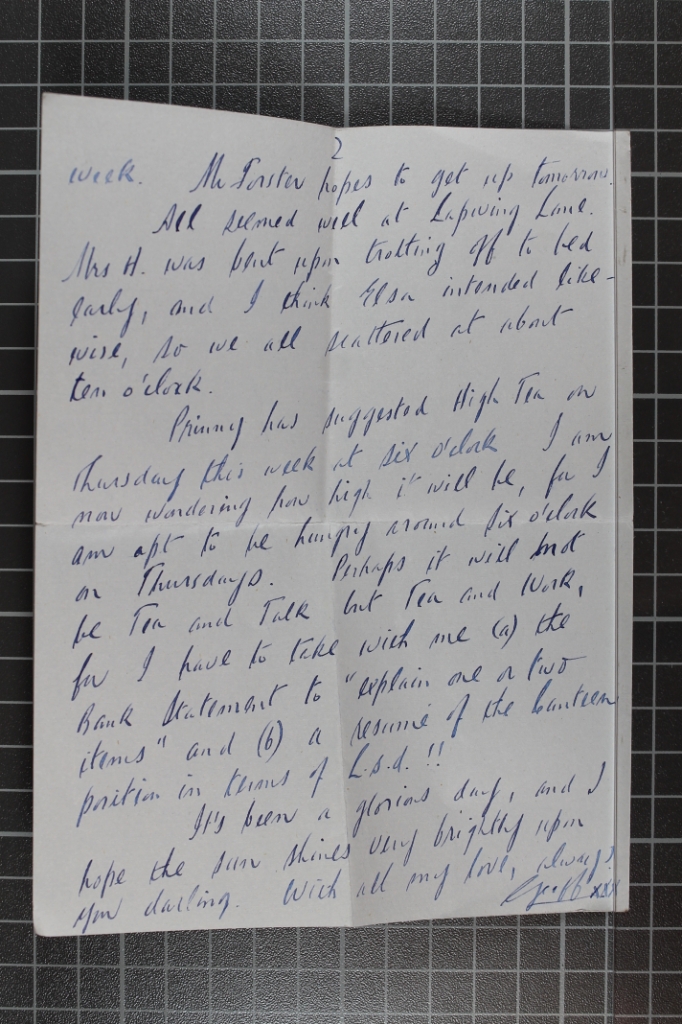 2
week. Mr Forster hopes to get up tomorrow.
All seemed well at Lapwing Lane.
Mrs H. was bent upon trotting off to bed
early, and I think Elsa intended like-
wise, so we all scattered at about
ten o'clock.
Prinny has suggested High Tea on
Thursday this week at six o'clock I am
now wondering how high it will be, for I
am apt to be hungry around six o'clock
on Thursdays. Perhaps it will not
be Tea and Talk but Tea and Work,
for I have to take with me (a) the
Bank Statement to "explain one or two
items" and (b) a resumé of the Canteen
position in terms of L.s.d. !!
It's been a glorious day, and I
hope the sun shines very brightly upon
you darling. With all my love, always
Geoff xxx